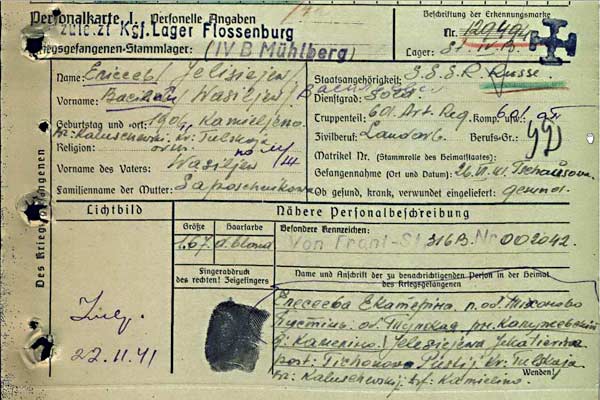 Personalkarte I: Personelle Angaben
zuletzt Kgf. Lager Flossenburg
Kriegsgefangenen-Stammlager: (IV B Mühlberg)
Beschriftung der Erkennungsmarke
Nr. 129494
Lager:
Des Kriegsgefangenen
Name: Елисеев / Jelisejew
Vorname: Василий / Wasilij
Geburtstag und -ort: 1906 Kamieljeno
Kr. Kaluschewski, Kr. Tulskaja
Religion: orth.
Vorname des Vaters: Wasiljew
Familienname der Mutter: Saposchnikowa
Staatsangehörigkeit: S.S.S.R. Russe.
Dienstgrad: Sold.
Truppenteil: 601. Art. Reg. Komp. usw.: 601.
Zivilberuf: Landarb. Berufs-Gr.:
Matrikel Nr. (Stammrolle des Heimatstaates):
Gefangennahme (Ort und Datum): 26.VII.41.
Ob gesund, krank, verwundet eingeliefert: gesund.
Lichtbild
Nähere Personalbeschreibung
Größe
Haarfarbe
1.67
d. blond
Besondere Kennzeichen:
Von Front-St 316B. Nr. 002042.
Fingerabdruck
des rechten! Zeigefingers
Name und Anschrift der zu benachrichtigenden Person in der Heimat
des Kriegsgefangenen
Елесеева Екатерина п. од. Тихоново
Пустинь. од. Тулская, рн. Калужевский
Каменино / Jelesiejewa Jekatierina
post: Tichonowa Pustij, Kr. Tulskaja
Kr. Kaluschewskij, Kamielino.
Wenden!
22.11.41